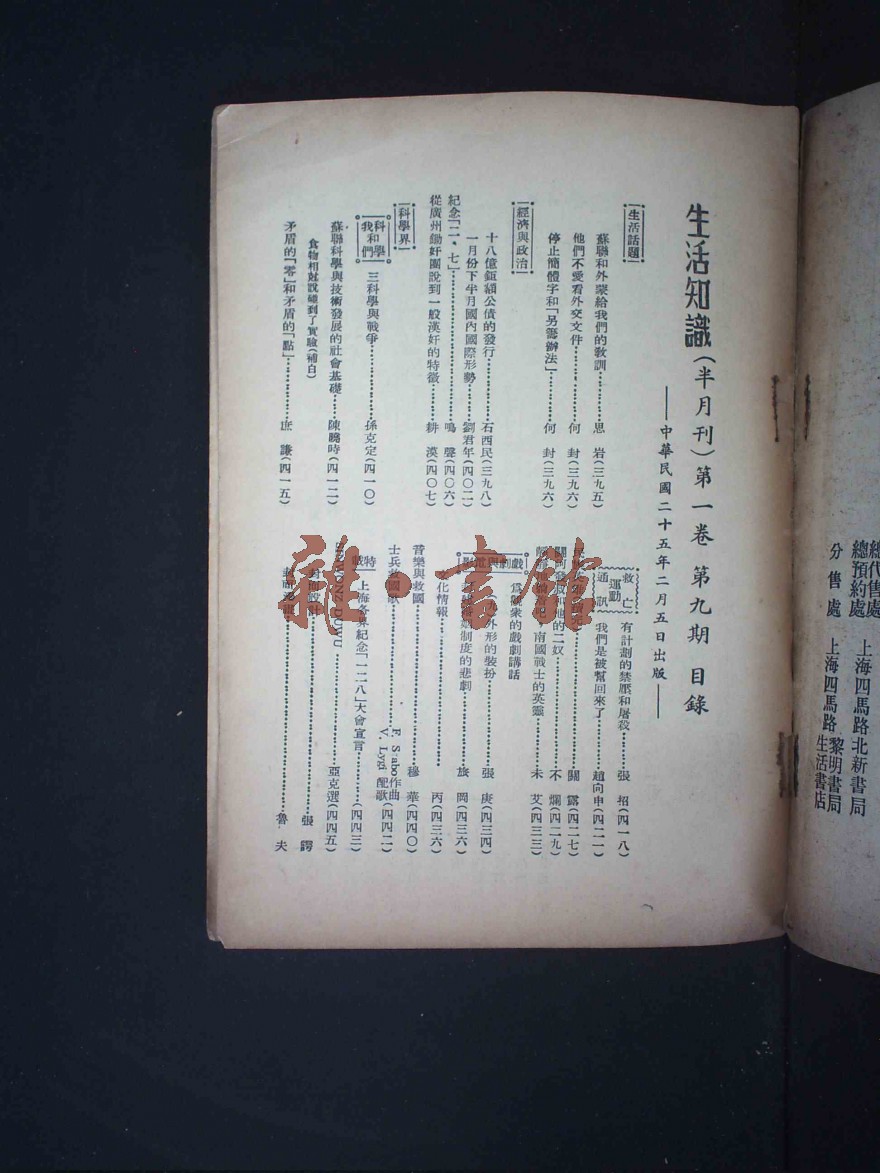 生活知識(半月刊)第一卷 第九期 目錄
——中華民國二十五年二月五日出版——
生活話題
蘇聯和外蒙給我們的教訓………思 岩(三九五)
他們不愛看外交文件………何 封(三九六)
停止簡體字和「另籌辦法」………何 封(三九六)
經濟與政治
十八億鉅額公債的發行………石西民(三九八)
一月份下半月國內國際形勢………劉君年(四〇二)
紀念「二、七」………鳴 聲(四〇六)
從廣州鋤奸團說到一般漢奸的特徵………耕 漠(四〇七)
科學界
科學和我們
三科學與戰爭………孫克定(四一〇)
蘇聯科學與技術發展的社會基礎………陳曉時(四一二)
食物相尅說碰到了實驗(補白)
矛盾的「零」和矛盾的「點」………庶 謙(四一五)
救亡運動通訊
有計劃的禁壓和屠殺………張 招(四一八)
我們是被幫回來了………趙向申(四二一)
關 露(四二七)
的二奴………不 爛(四二九)
南國戰士的英靈………未 艾(四三三)
戲劇與電影
爲觀衆的戲劇講話
外形的裝扮………張 庚(四三四)
制度的悲劇………旅 岡(四三六)
文化情報………丙(四三六)
音樂與救國………穆 華(四四〇)
士兵救國歌………F. Szabo作曲 V. Lygi 配歌(四四二)
特載
上海各界紀念「一二八」大會宣言………(四四三)
DUWU………亞克選(四四五)
封面設計………張 諤
封面漫畫………魯 夫
雜·書館
總代售處
總預約處 上海四馬路北新書局
分售處 上海四馬路黎明書局 生活書店